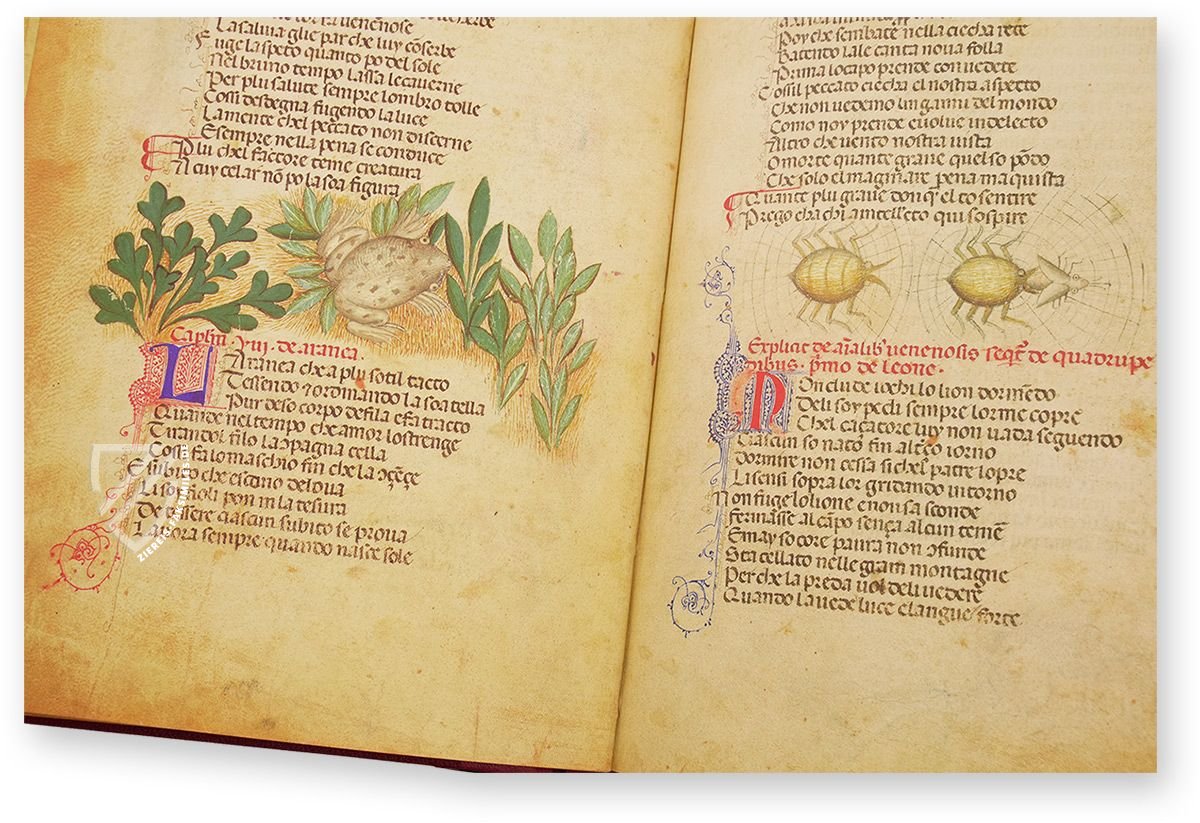 Lasalvia glie par che luy coserbe
Fuge laspeto quanto po del sole
Nel bruno tempo lassa le caverne
Per plu salute sempre lombro tolle
Cossi desdegna fugendo la luce
La mente chel peccato non discerne
E sempre nella pena se conduce
Plu chel factore teme creatura
A cuy celar nō po la soa figura
Capľm .Viii. de aranea.
LAranea che a plu sotil tacto
Tessendo ⁊ ordinando la soa tella
Pur deso corpo de fila e fa tracto
Quando nel tempo che amor lo strenge
Tirando l filo la ↄpagna cella
Cossi fa lo maschio fin che la ↄçeçe
E subito che escano delova
Li soy fioli pon in la tesura
De tessere ciascun subito se prova
Lavora sempre quando nasce sole
Poy che sembate nella ciecha rete
Batendo lale canta nova folla
Prima lo capo prende con vedete
Cossi l peccato ciecha el nostra aspetto
Che non vedemo linganni del mondo
Como noy prende e volve in delecto
Altro che vento nostra vista
O morte quanto grave quel so pōdo
Che solo el magīnare pena ma quista
Quante plu grave donq̄ el to sentire
Prego cha chi a intellecto qui sospire
Explicit de aīalib' venenosis seqr̃ de quadrupe
dibus. p̄mo de leone.
MOn clude iochi lo lion dormēdo
Deli soy pedi sempre lorme copre
Chel caçatore luy non vada seguendo
Ciascun so nato fin al terço iorno
Dormire non cessa si chel patre iopre
Li sensi sopra lor gridando intorno
Non fuge lo lione e non sa sconde
Fermasse al capo sença alcun temē
E may so core paura non ↄfunde
Sta cellato nelle gram montagne
Per che la preda vol deli vedere
Quando la vede luce e langue forte
ZIEREIS FACSIMILES